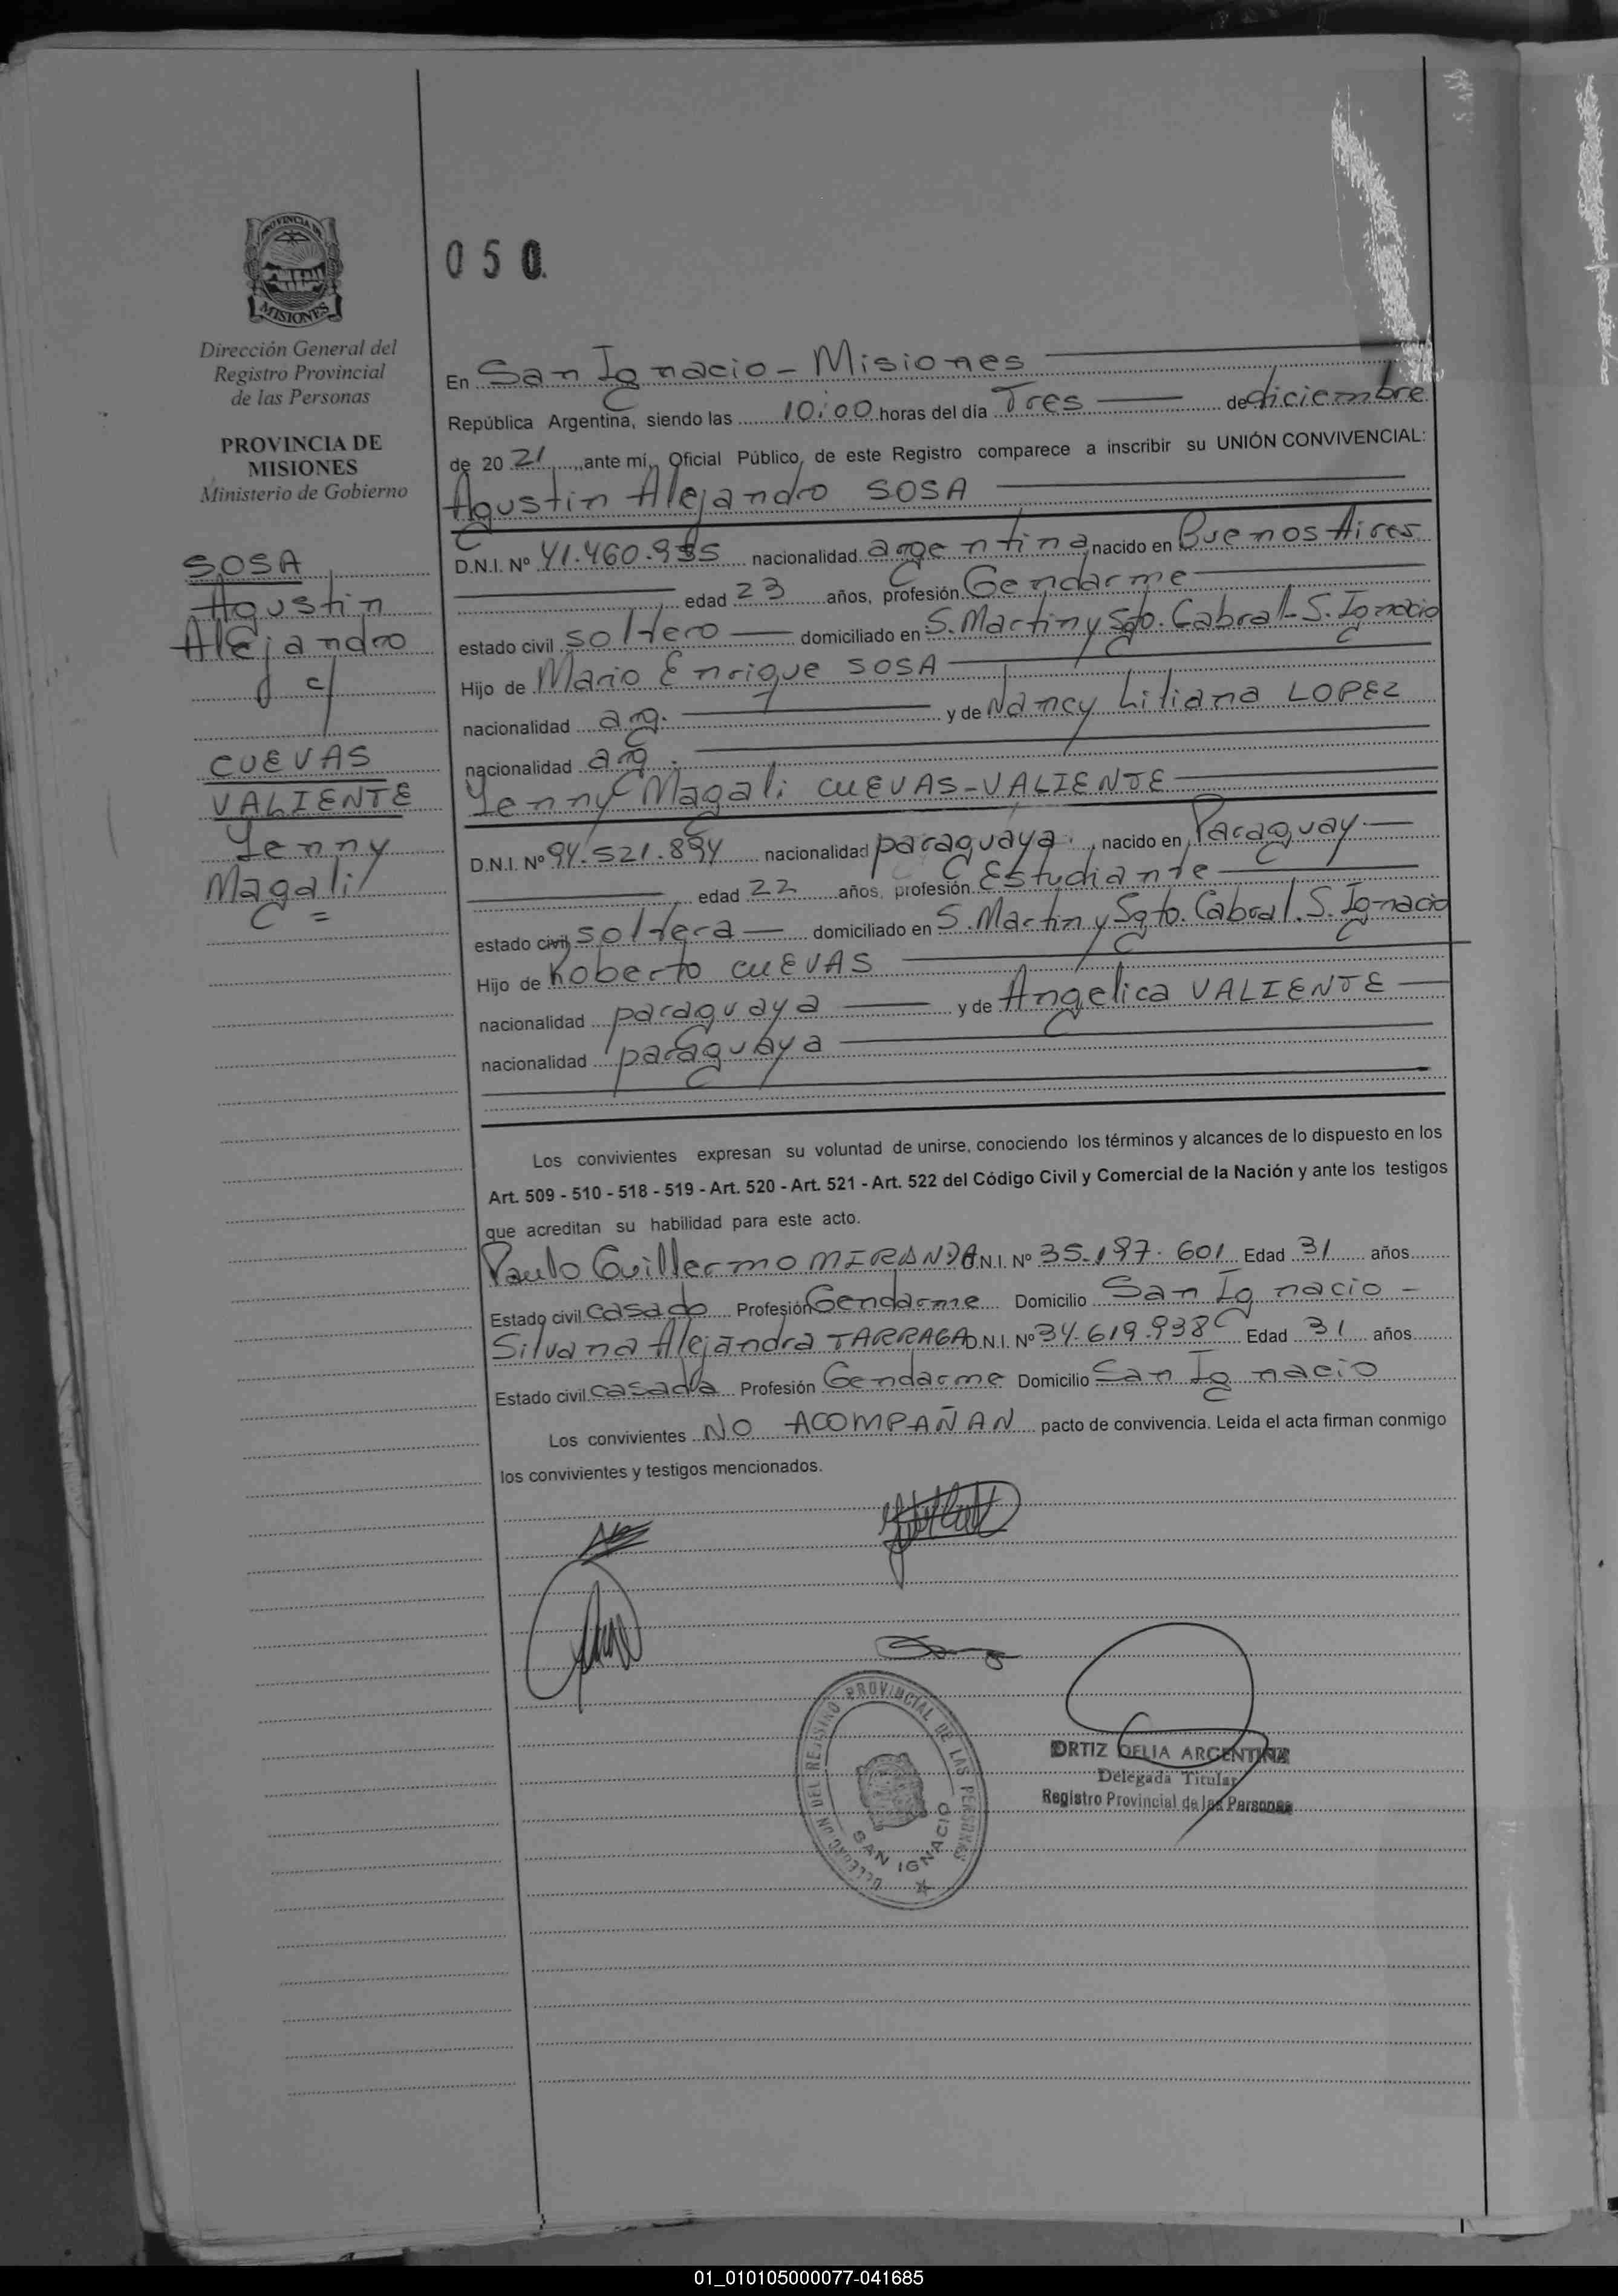 PROVINCIA DE
MISIONES
Dirección General del
Registro Provincial
de las Personas
PROVINCIA DE
MISIONES
Ministerio de Gobierno
SOSA
Agustin
Alejandro
c/
CUEVAS
VALIENTE
Yenny
Magali
=
050
En San Ignacio - Misiones
República Argentina, siendo las 10:00 horas del día Tres de diciembre
de 2021, ante mí, Oficial Público, de este Registro comparece a inscribir su UNIÓN CONVIVENCIAL:
Agustin Alejandro SOSA
D.N.I. Nº 41.460.955 nacionalidad argentina, nacido en Buenos Aires
edad 23 años, profesión Gendarme
estado civil soltero domiciliado en S. Martin y Sgto. Cabral - S. Ignacio
Hijo de Mario Enrique SOSA
nacionalidad arg. y de Nancy Liliana LOPEZ
nacionalidad arg.
Yenny Magali CUEVAS-VALIENTE
D.N.I. Nº 94.521.894 nacionalidad paraguaya, nacido en Paraguay
edad 22 años, profesión Estudiante
estado civil soltera domiciliado en S. Martin y Sgto. Cabral. S. Ignacio
Hijo de Roberto CUEVAS
nacionalidad paraguaya y de Angelica VALIENTE
nacionalidad paraguaya
Los convivientes expresan su voluntad de unirse, conociendo los términos y alcances de lo dispuesto en los
Art. 509 - 510 - 518 - 519 - Art. 520 - Art. 521 - Art. 522 del Código Civil y Comercial de la Nación y ante los testigos
que acreditan su habilidad para este acto.
Paulo Guillermo MIRANDA D.N.I. Nº 35.197.601 Edad 31 años
Estado civil casado Profesión Gendarme Domicilio San Ignacio -
Silvana Alejandra TARRAGA D.N.I. Nº 34.619.938 Edad 31 años
Estado civil casada Profesión Gendarme Domicilio San Ignacio
Los convivientes NO ACOMPAÑAN pacto de convivencia. Leída el acta firman conmigo
los convivientes y testigos mencionados.
DELEGACIÓN DEL REGISTRO PROVINCIAL DE LAS PERSONAS
SAN IGNACIO
ORTIZ DELIA ARGENTINA
Delegada Titular
Registro Provincial de las Personas
01_010105000077-041685